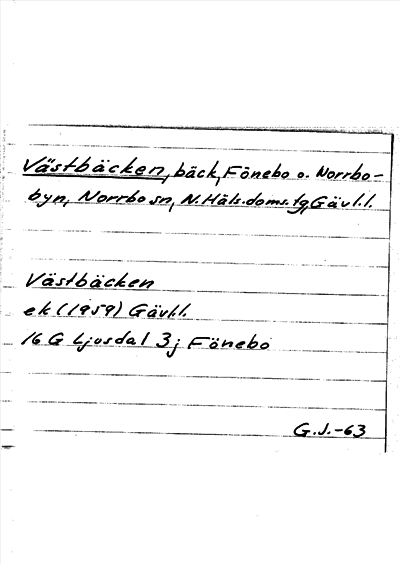 Västbäcken, bäck, Fönebo o. Norrbo-
byn, Norrbo sn, N. Häls. doms. tg, Gävl. l.
Västbäcken
ek (1959) Gävl. l.
16 G Ljusdal 3 j Fönebo
G.J.-63